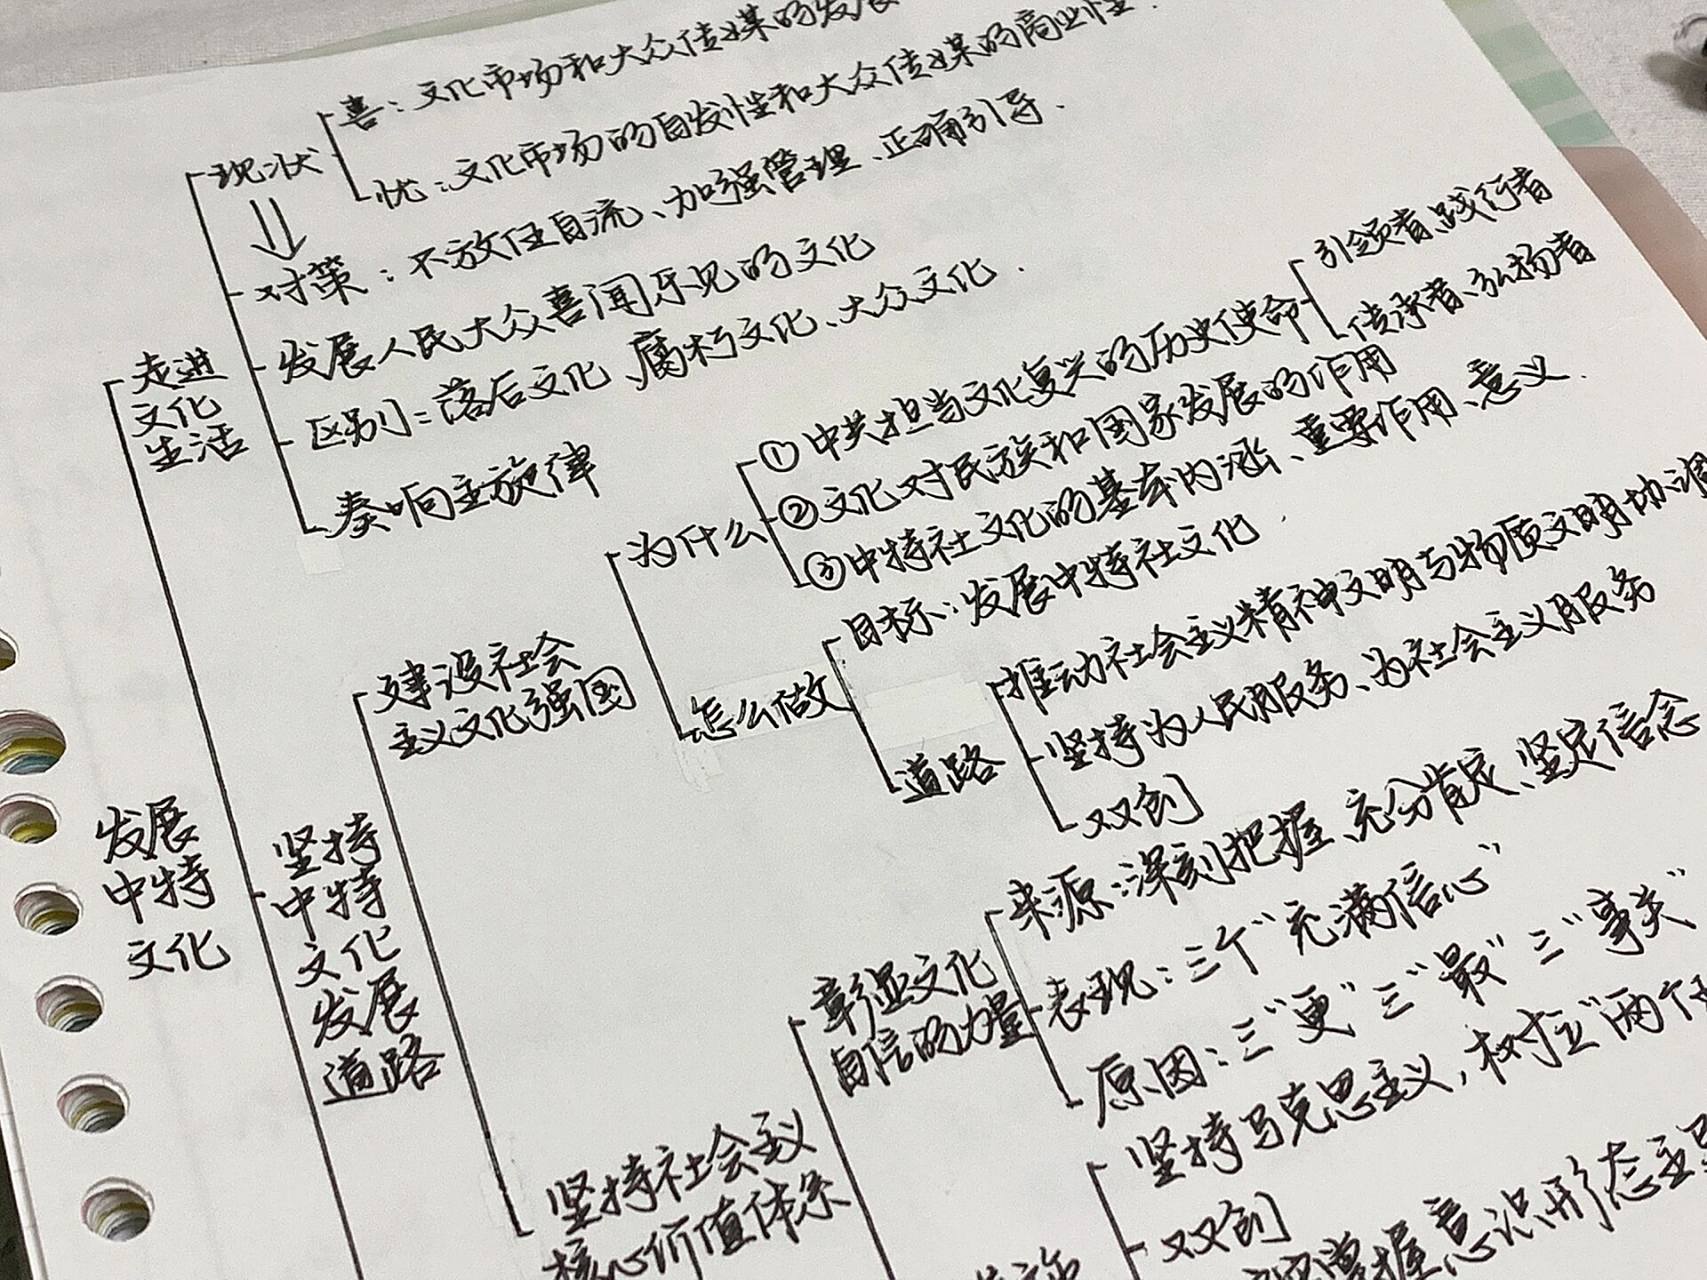 喜：文化市场和大众传媒的发展
现状
忧：文化市场的自发性和大众传媒的商业性.
对策：不放任自流、加强管理、正确引导.
走进
文化
生活
发展人民大众喜闻乐见的文化
区别：落后文化、腐朽文化、大众文化.
奏响主旋律
发展
中特
文化
坚持
中特
文化
发展
道路
建设社会
主义文化强国
为什么
①中共担当文化复兴的历史使命
引领者、践行者
传承者、弘扬者
②文化对民族和国家发展的作用
③中特社文化的基本内涵、重要作用、意义.
怎么做
目标：发展中特社文化.
道路
推动社会主义精神文明与物质文明协调
坚持为人民服务、为社会主义服务
双创
坚持社会主义
核心价值体系
彰显文化
自信的力量
来源：深刻把握、充分肯定、坚定信念
表现：三个“充满信心”
原因：三“更”三“最”三“事关”
坚持马克思主义，树立“两个
双创
掌握意识形态主